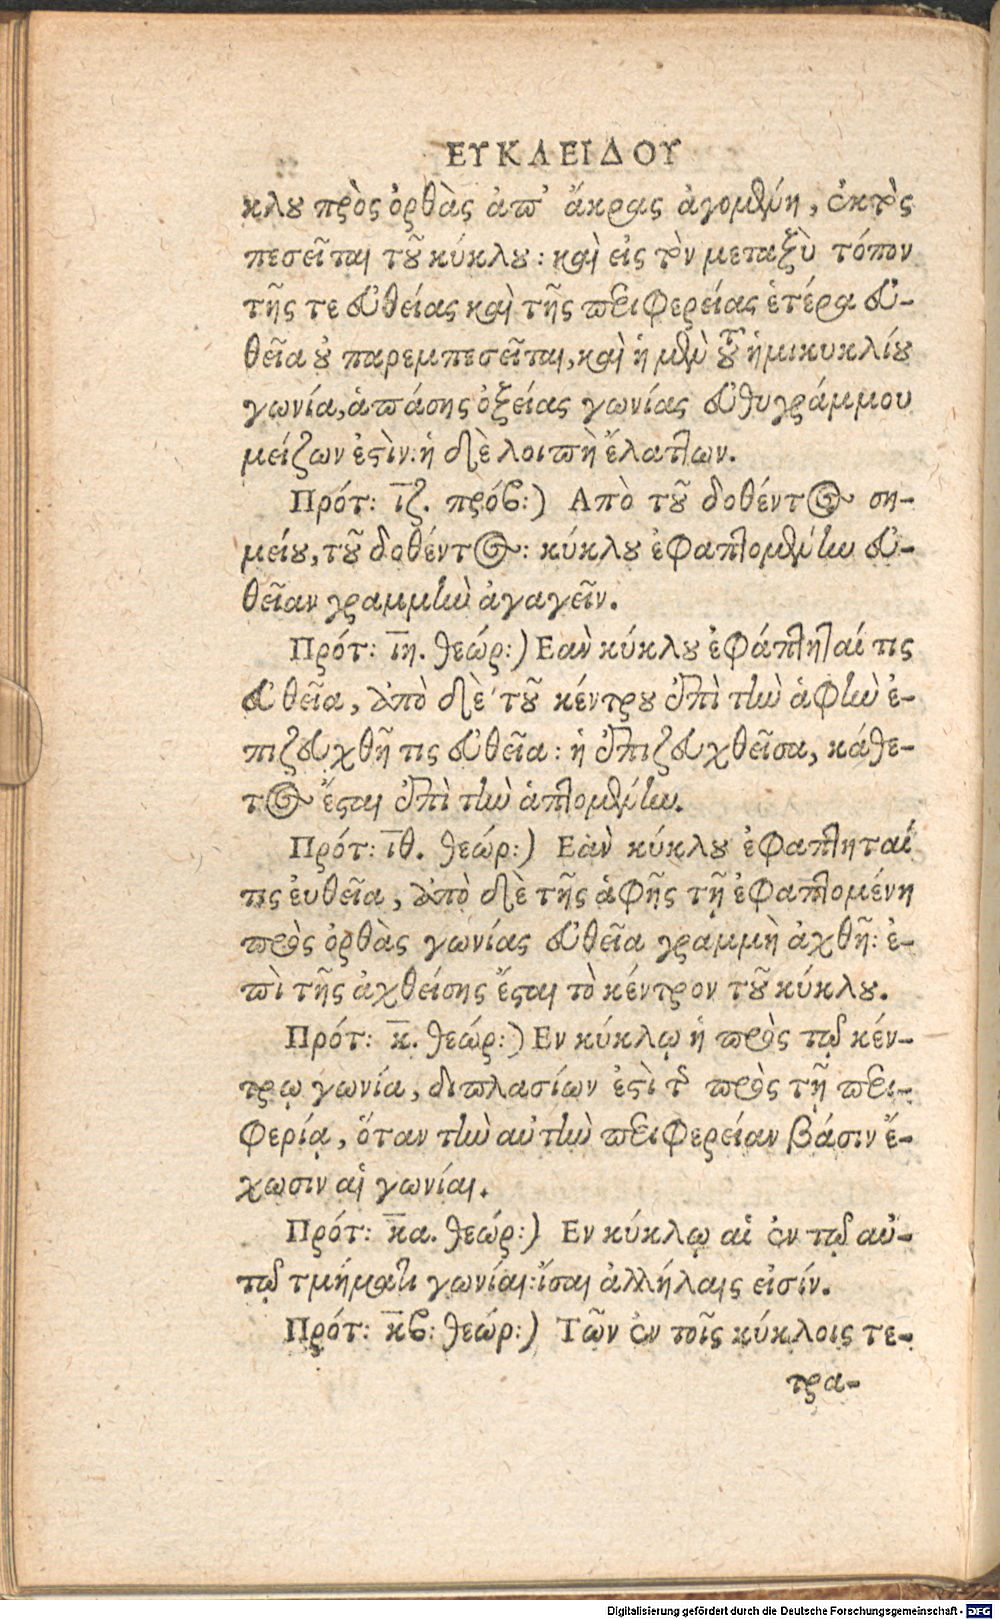 ΕΥΚΛΕΙΔΟΥ
κλου πρὸς ὀρθὰς ἀπ' ἄκρας ἀγομένη, ἐκτὸς
πεσεῖται τοῦ κύκλου: καὶ εἰς τὸν μεταξὺ τόπον
τῆς τε εὐθείας καὶ τῆς περιφερείας ἑτέρα εὐ-
θεῖα οὐ παρεμπεσεῖται, καὶ ἡ μὲν τοῦ ἡμικυκλίου
γωνία, ἁπάσης ὀξείας γωνίας εὐθυγράμμου
μείζων ἐστὶν: ἡ δὲ λοιπὴ ἔλαττων.
Πρότ: ιζ. πρόβ:) Απὸ τοῦ δοθέντος ση-
μείου, τοῦ δοθέντος: κύκλου ἐφαπτομένην εὐ-
θεῖαν γραμμὴν ἀγαγεῖν.
Πρότ: ιη. θεώρ:) Εαὶν κύκλου ἐφάπτηταί τις
εὐθεῖα, ἀπὸ δὲ τοῦ κέντρου ἐπὶ τὴν ἁφὴν ἐ-
πιζευχθῆ τις εὐθεῖα: ἡ ἐπιζευχθεῖσα, κάθε-
τος ἔσται ἐπὶ τὴν ἁπτομένην.
Πρότ: ιθ. θεώρ:) Εὰν κύκλου ἐφαπτηταί
τις ἐυθεῖα, ἀπὸ δὲ τῆς ἁφῆς τῇ ἐφαπτομένη
πρὸς ὀρθὰς γωνίας εὐθεῖα γραμμὴ ἀχθῆ: ἐ-
πὶ τῆς ἀχθείσης ἔσται τὸ κέντρον τοῦ κύκλου.
Πρότ: κ. θεώρ:) Εν κύκλῳ ἡ πρὸς τῷ κέν-
τρῳ γωνία, διπλασίων ἐστὶ τῆς πρὸς τῇ περι-
φερίᾳ, ὅταν τὴν αὐτὴν περιφερείαν βάσιν ἔ-
χωσιν αἱ γωνίαι.
Πρότ: κα. θεώρ:) Εν κύκλῳ αἱ ἐν τῷ αὐ-
τῷ τμήματι γωνίαι: ἴσαι ἀλλήλαις εἰσίν.
Πρότ: κβ: θεώρ:) Τῶν ἐν τοῖς κύκλοις τε-
τρα-
Digitalisierung gefördert durch die Deutsche Forschungsgemeinschaft - DFG